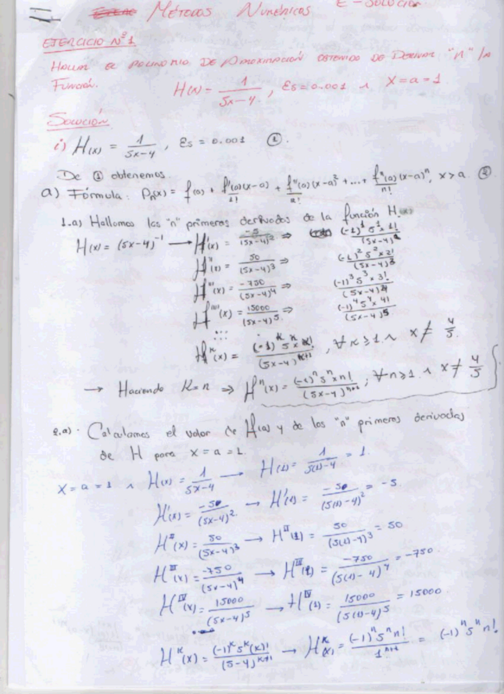 Métodos Numéricos E-Solución
EJERCICIO Nº1
Hallar el polinomio de aproximación obtenido de derivar "n" la
Función. H(x) = 1/(5x-4), Es = 0.001 ∧ x = a = 1
Solución
i) H(x) = 1/(5x-4), Es = 0.001 ①.
De ① obtenemos
a) Fórmula: Pn(x) = f(a) + f'(a)(x-a)/1! + f''(a)(x-a)²/2! + ... + fⁿ(a)(x-a)ⁿ/n!, x > a. ②
1.a) Hallamos las "n" primeras derivadas de la función H(x)
H(x) = (5x-4)⁻¹ → H'(x) = -5/(5x-4)² ⇒ (-1)¹5¹×1!/(5x-4)²
H''(x) = 50/(5x-4)³ ⇒ (-1)²5²×2!/(5x-4)³
H'''(x) = -750/(5x-4)⁴ ⇒ (-1)³5³×3!/(5x-4)⁴
H''''(x) = 15000/(5x-4)⁵ ⇒ (-1)⁴5⁴×4!/(5x-4)⁵
Hᴷ(x) = (-1)ᴷ5ᴷ×K!/(5x-4)ᴷ⁺¹, ∀K≥1 ∧ x ≠ 4/5
→ Haciendo K=n ⇒ Hⁿ(x) = (-1)ⁿ5ⁿ×n!/(5x-4)ⁿ⁺¹, ∀n≥1 ∧ x ≠ 4/5
2.a). Calculamos el valor de H(a) y de las "n" primeras derivadas
de H para x = a = 1
x = a = 1 ∧ H(x) = 1/(5x-4) → H(1) = 1/(5(1)-4) = 1.
H'(x) = -5/(5x-4)² → H'(1) = -5/(5(1)-4)² = -5
Hᴵᴵ(x) = 50/(5x-4)³ → Hᴵᴵ(1) = 50/(5(1)-4)³ = 50
Hᴵᴵᴵ(x) = -750/(5x-4)⁴ → Hᴵᴵᴵ(1) = -750/(5(1)-4)⁴ = -750.
Hᴵⱽ(x) = 15000/(5x-4)⁵ → Hᴵⱽ(1) = 15000/(5(1)-4)⁵ = 15000.
Hᴷ(x) = (-1)ᴷ5ᴷ(K)!/(5-4)ᴷ⁺¹ → Hᴷ(x) = (-1)ⁿ5ⁿn!/1ⁿ⁺¹ = (-1)ⁿ5ⁿn!